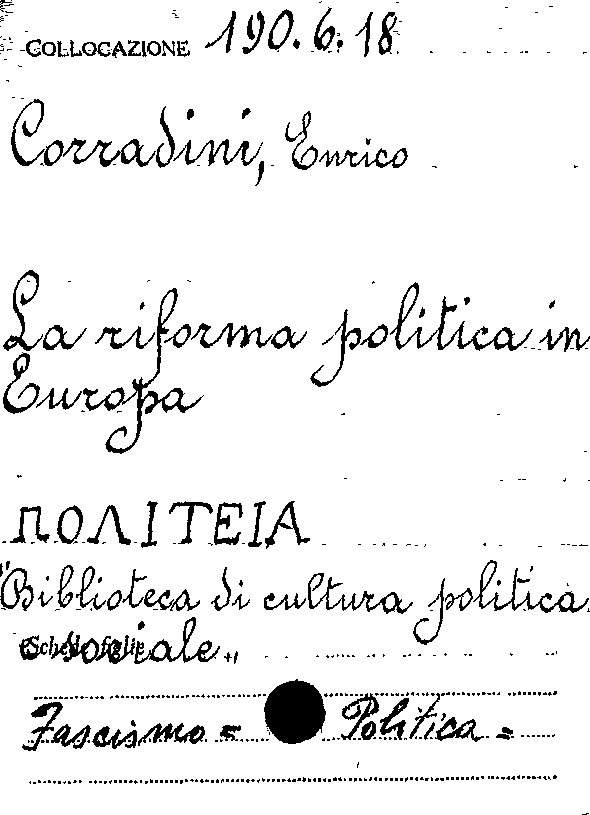 COLLOCAZIONE 190.6.18
Corradini, Enrico
La riforma politica in
Europa
ΠΟΛΙΤΕΙΑ
"Biblioteca di cultura politica
e sociale"
Fascismo = Politica =